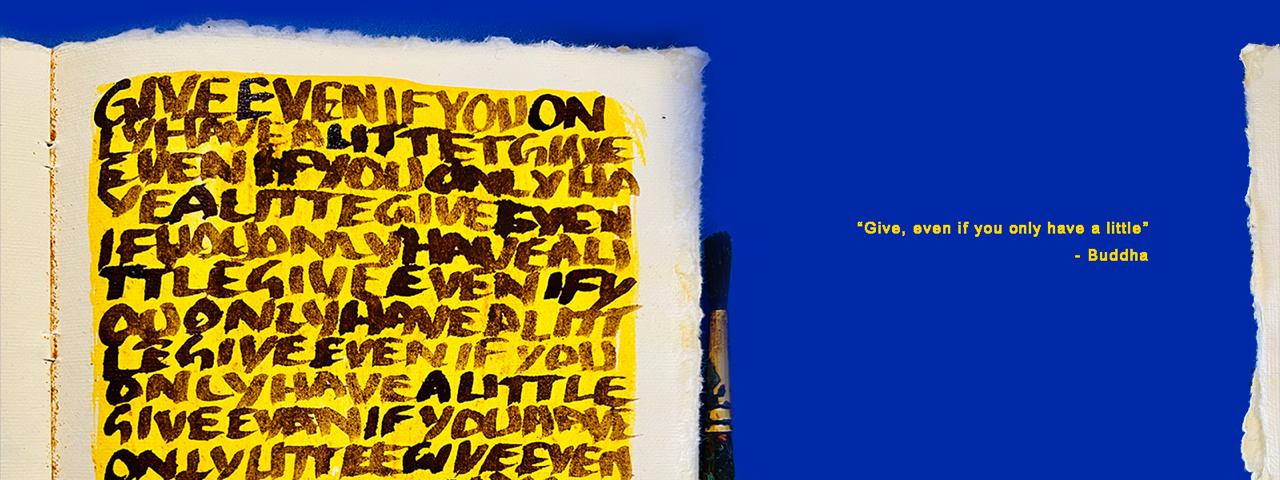 GIVE EVEN IF YOU ON
LY HAVE A LITTET GIVE
EVEN IF YOU ONLY HA
VE A LITTTE GIVE EVEN
IF YOU ONLY HAVE A LI
TTLE GIVE EVEN IF Y
OU ONLY HAVE A LITT
LE GIVE EVEN IF YOU
ONLY HAVE A LITTLE
GIVE EVEN IF YOU HAVE
ONLY LITTLE GIVE EVEN
“Give, even if you only have a little”
- Buddha